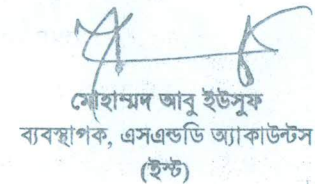 মোহাম্মদ আবু ইউসুফ
ব্যবস্থাপক, এসএন্ডডি অ্যাকাউন্টস
(ইস্ট)